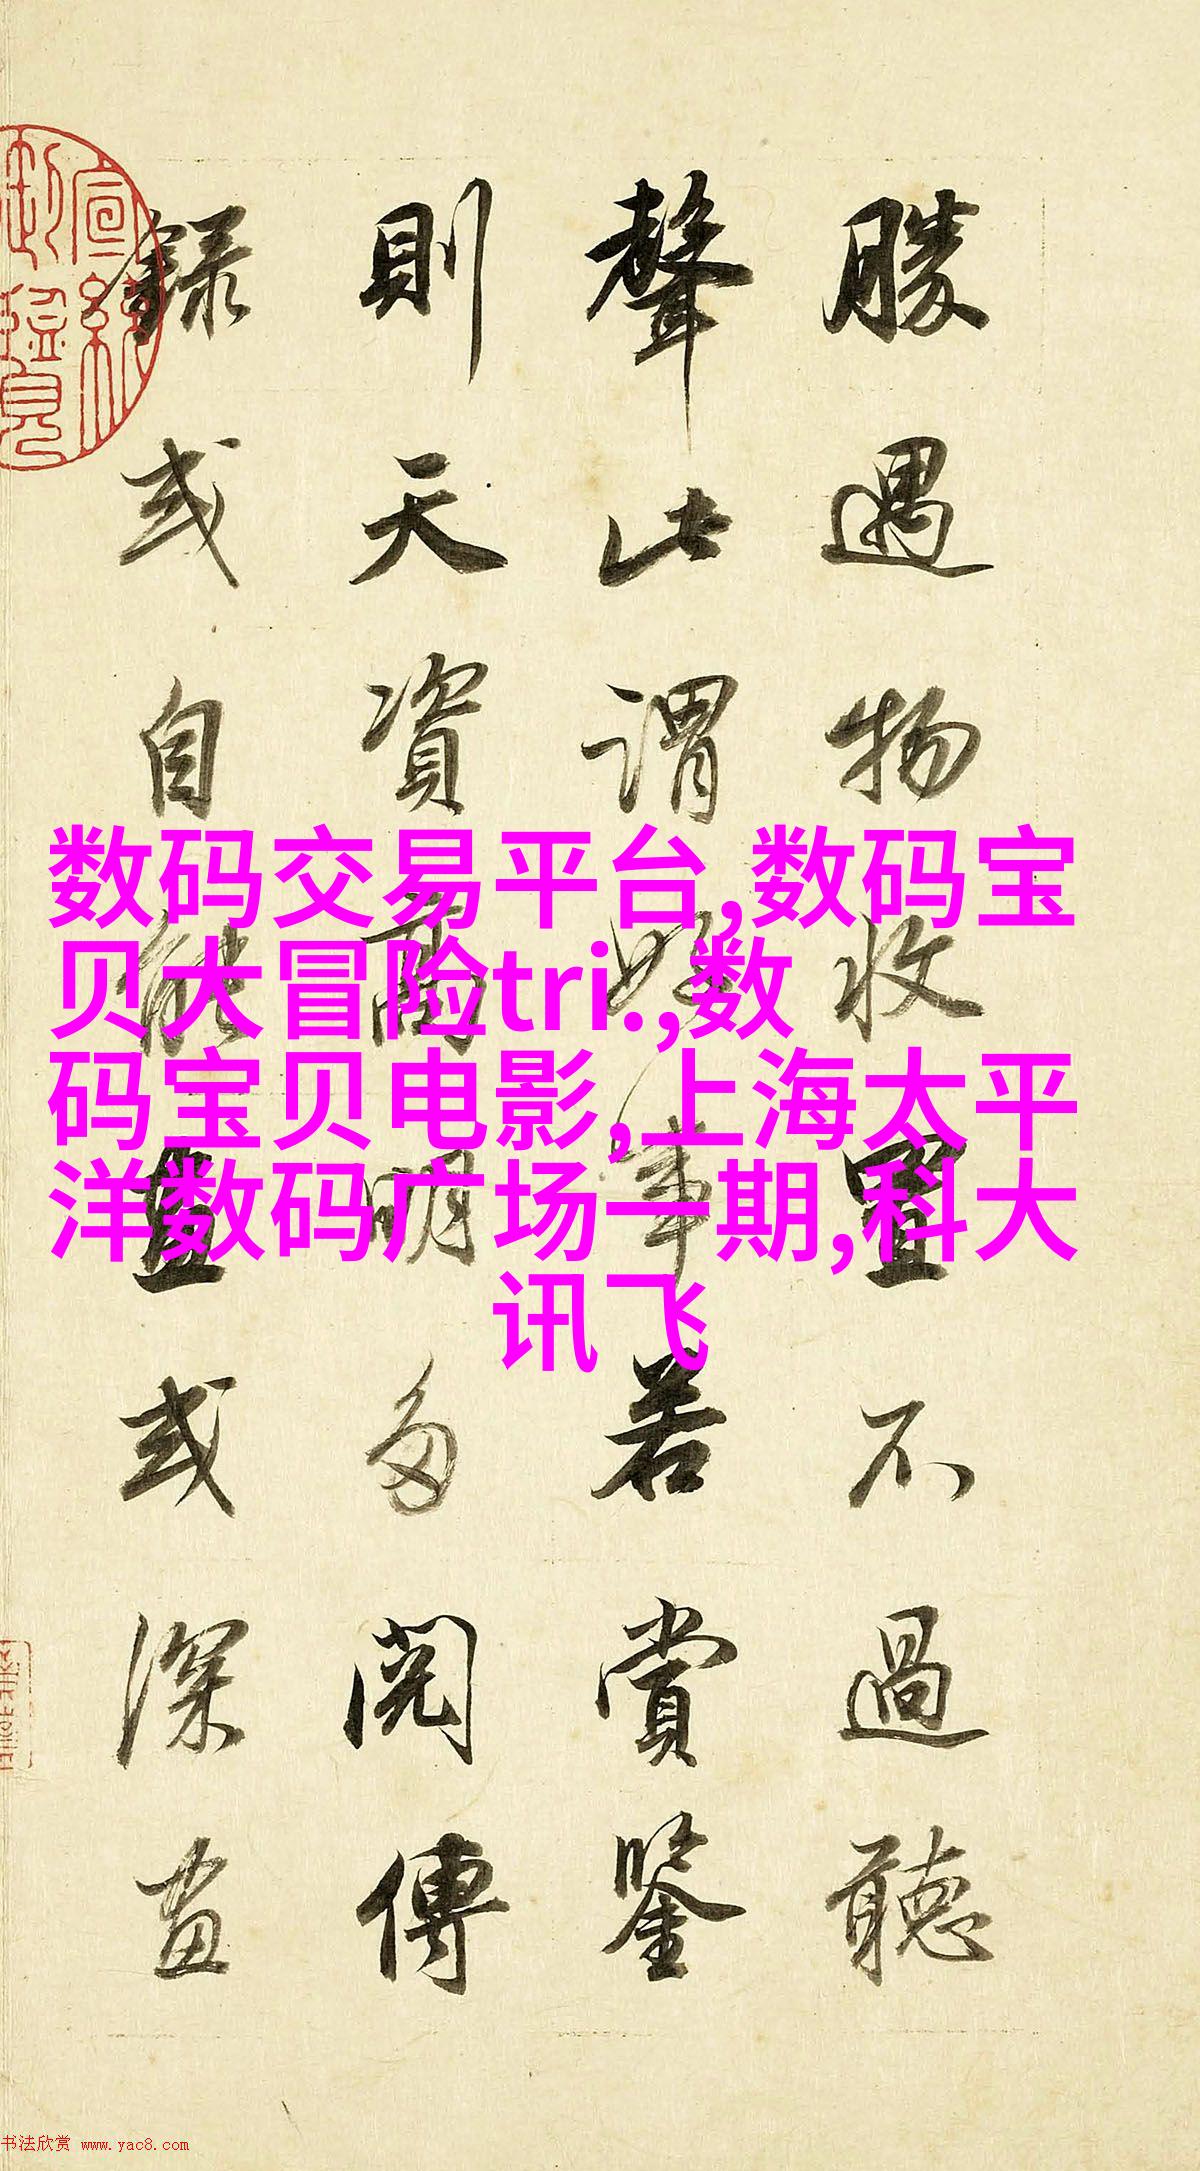 勝遇物收置不過聽
聲此謂好事若賞鑒
則天資高明多閱傳
録或自能畫或深畫
数码交易平台,数码宝
贝大冒险tri.,数
码宝贝电影,上海太平
洋数码广场一期,科大
讯飞
宣統御覽
书法欣赏 www.yac8.com